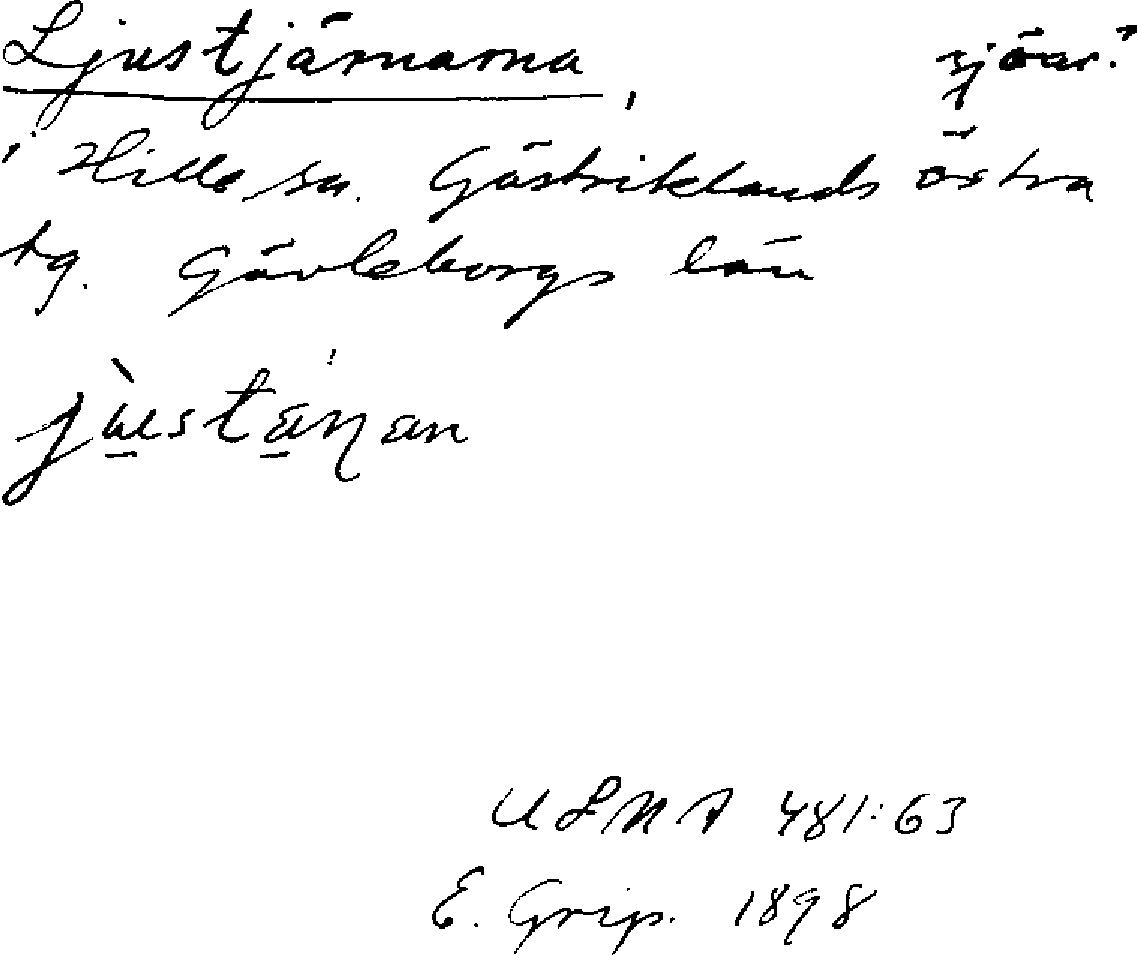 Ljustjärnarna, sjöar?
i Hille sn. Gästriklands östra
tg. Gävleborgs län
jùstäŋan
ULMA 481:63
E. Grip. 1898